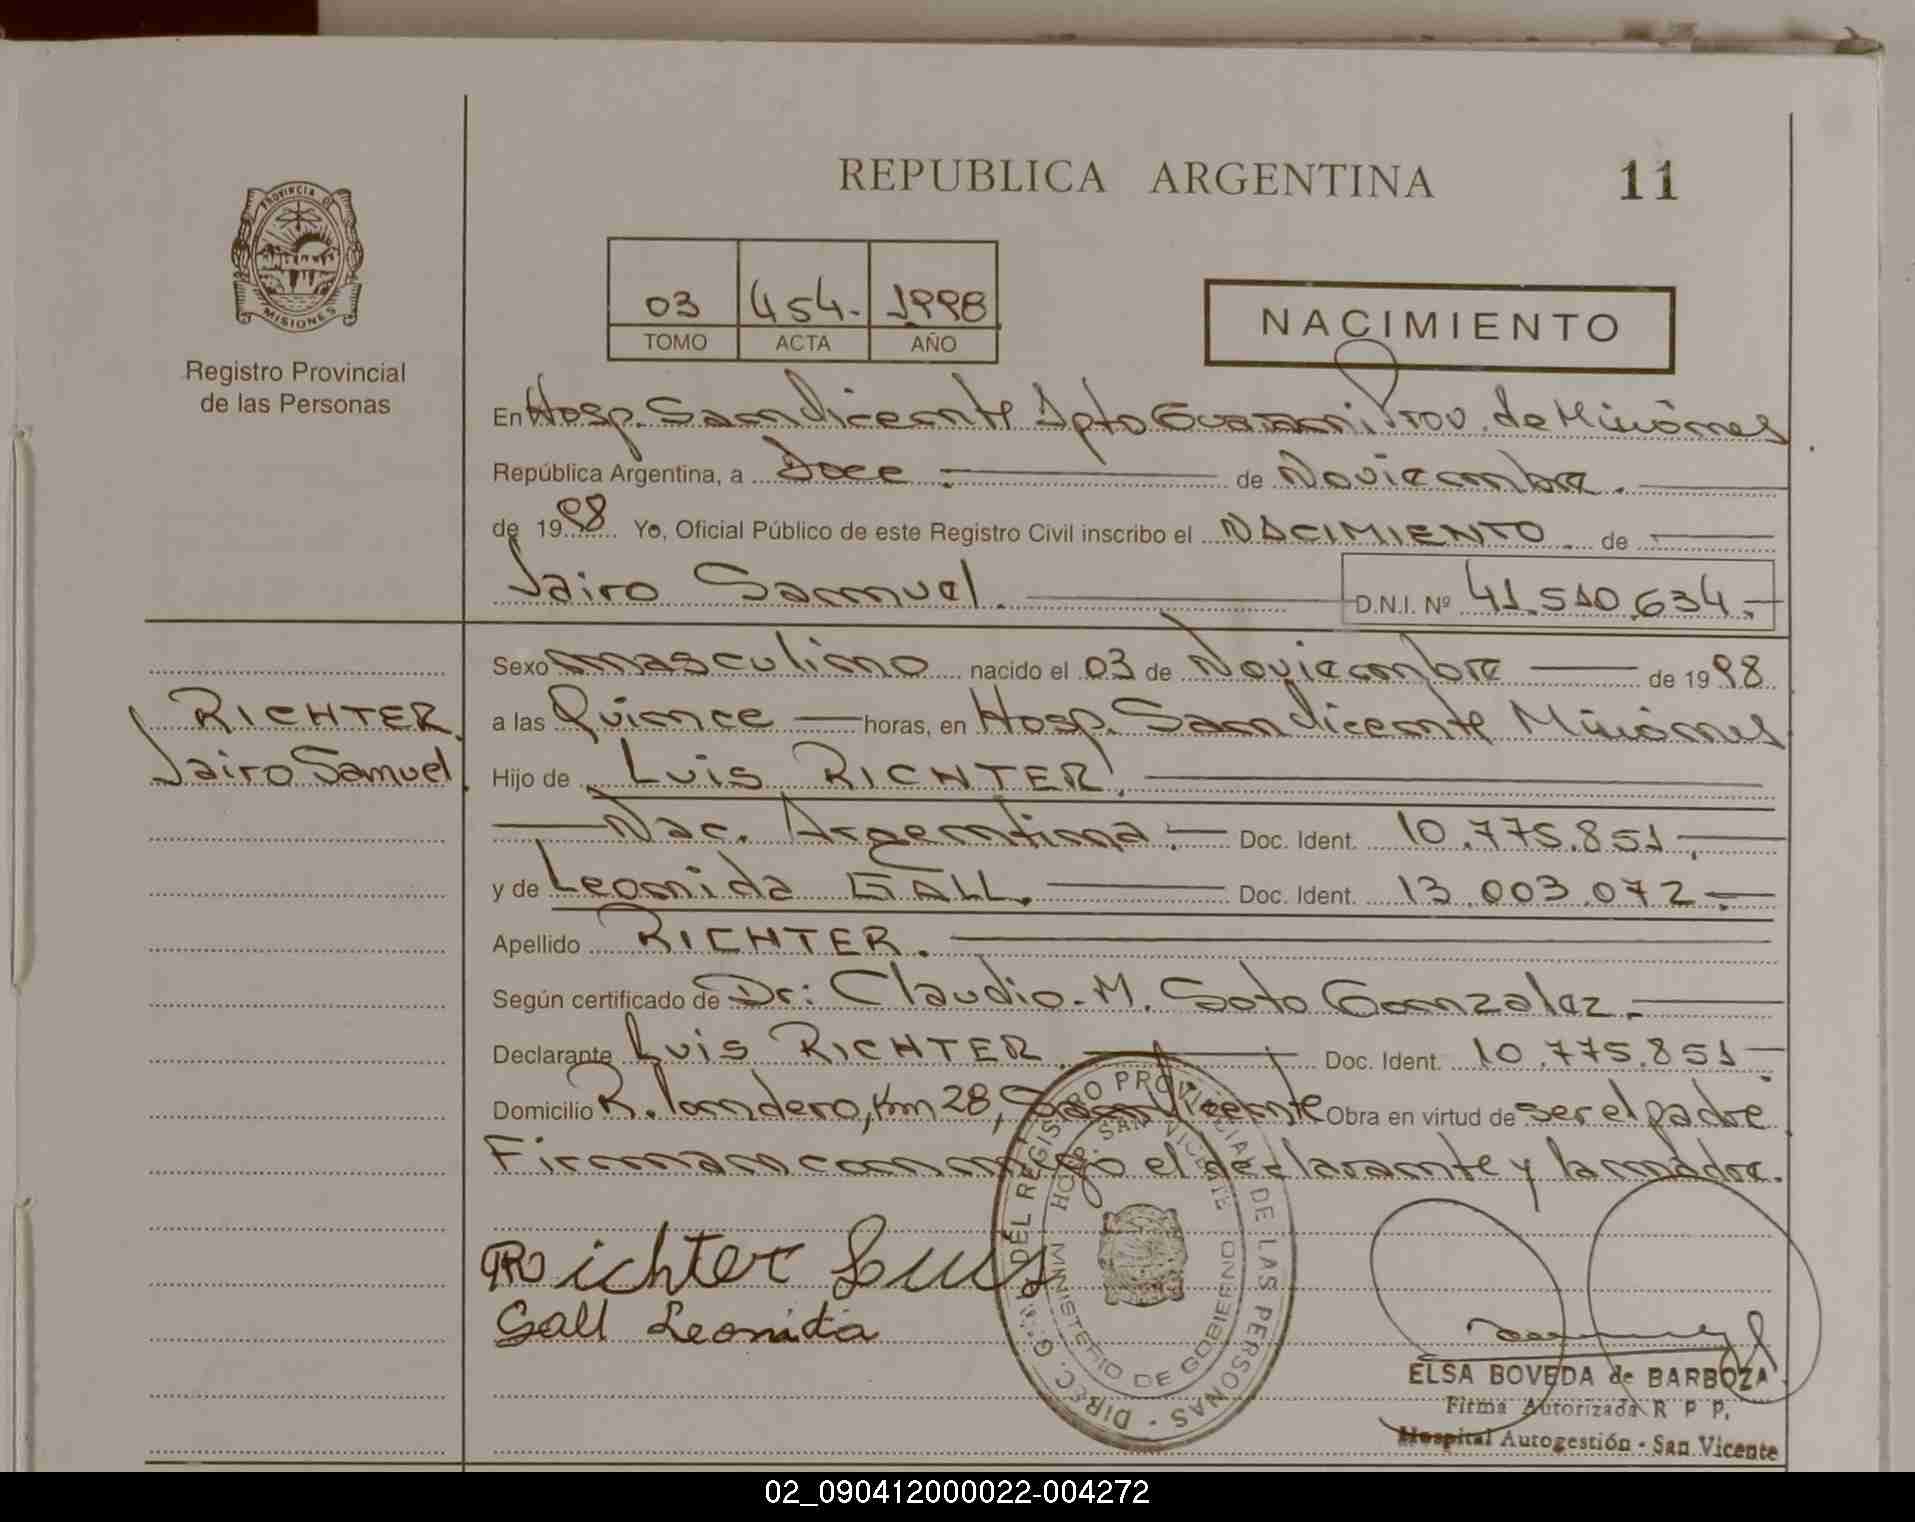 REPUBLICA ARGENTINA
11
PROVINCIA DE
MISIONES
Registro Provincial
de las Personas
03 454.- 1998
TOMO ACTA AÑO
NACIMIENTO
En Hosp. San Vicente Dpto Guarani Prov. de Misiones
República Argentina, a Doce.- de Noviembre.
de 1998 Yo, Oficial Público de este Registro Civil inscribo el NACIMIENTO. de
Jairo Samuel. D.N.I. Nº 41.510.634.-
Sexo masculino nacido el 03 de Noviembre de 1998
RICHTER
Jairo Samuel.
a las Quince horas, en Hosp. San Vicente Misiones
Hijo de Luis RICHTER.
Nac. Argentina.- Doc. Ident. 10.775.851.-
y de Leonida GALL. Doc. Ident. 13.003.072.-
Apellido RICHTER.
Según certificado de Dr: Claudio.M. Soto Gonzalez.-
Declarante Luis RICHTER. Doc. Ident. 10.775.851.-
Domicilio R. Tandero, Km 28, San Vicente Obra en virtud de ser el padre
Firman conmigo el declarante y la madre.
Richter Luis
Gall Leonida
DIREC. GRAL. DEL REGISTRO PROVINCIAL DE LAS PERSONAS
HOSP. SAN VICENTE
MINISTERIO DE GOBIERNO
ELSA BOVEDA de BARBOZA
Firma Autorizada R P P.
Hospital Autogestión - San Vicente
02_090412000022-004272